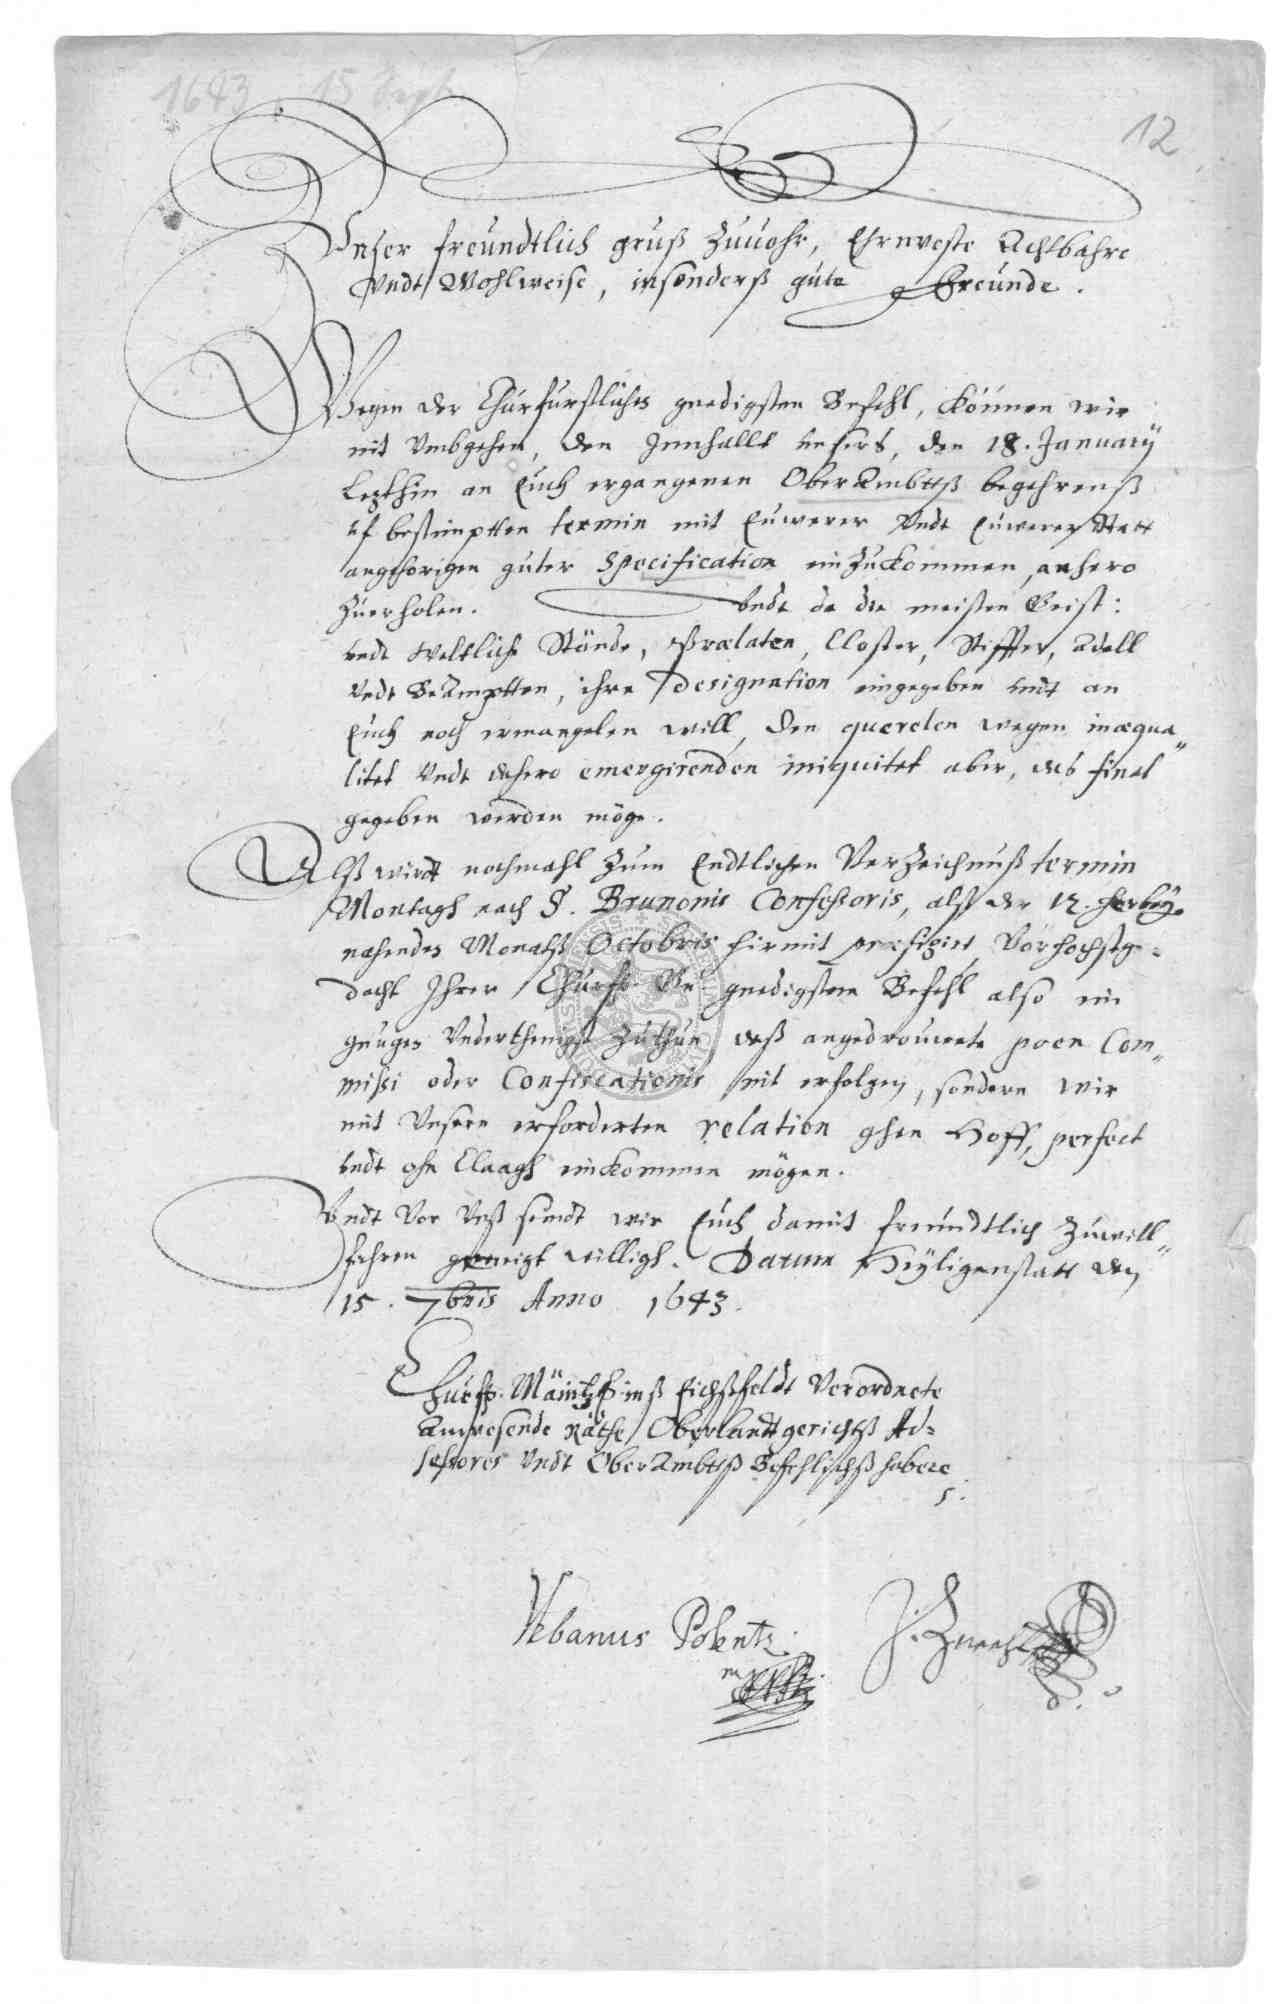 1643, 15 Sept.
12
Vnser freundtlich gruß zuuohr, Ehrnveste Achtbahre
Vndt Wohlweise, insonderß gute Freunde.
Wegen der Churfurstliches gnedigsten Befehl, können wir
nit Vmbgehen, den Jnnhallt unsers, den 18. January
Letzthin an Euch ergangenen OberAmbttß begehrenß
uf bestimptten termin mit Euwerer Vndt Euwerer Statt
angehörigen güter Specification einzukommen, anhero
zuerholen. Vndt da die meisten Geist:
vndt Weltliche Stände, Prælaten, Closter, Stiffter, Adell
Vndt BeAmptten, ihre designation eingegeben undt an
Euch noch ermangelen will, den querelen wegen inæqua„
litet Vndt dahero emergirenden iniquitet aber, das final
gegeben werden möge.
Alß wirdt nochmahl zum Endtlichen Verzeichnuß termin
Montagh nach S. Brunonis Confessoris, alß der 12. herbey
nahendes Monatß Octobris hirmit præfigirt, Vorhochstge=
dacht Jhrer Churfl. Gn. gnedigstem Befehl also ein
genuges Vnderthenigst zuthun, daß angedrouwete poen Com„
missi oder Confiscationis nit erfolgen, sondern wir
mit Vnsern erforderten relation ghen Hoff, perfect
vndt ohn Claagh einkommen mögen.
Vndt Vor Vnß seindt wir Euch damit freundtlich zuwill„
fahren geneigt willigh. Datum Heyligenstatt den
15. 7bris Anno 1643.
Churfl. Mäintz. inß Eichßfeldt Verordnete
Anwesende Räthe, Oberlandtgerichtß Ad=
sessores Vndt OberAmbttß Befehlichß habere
Vrbanus Polentz